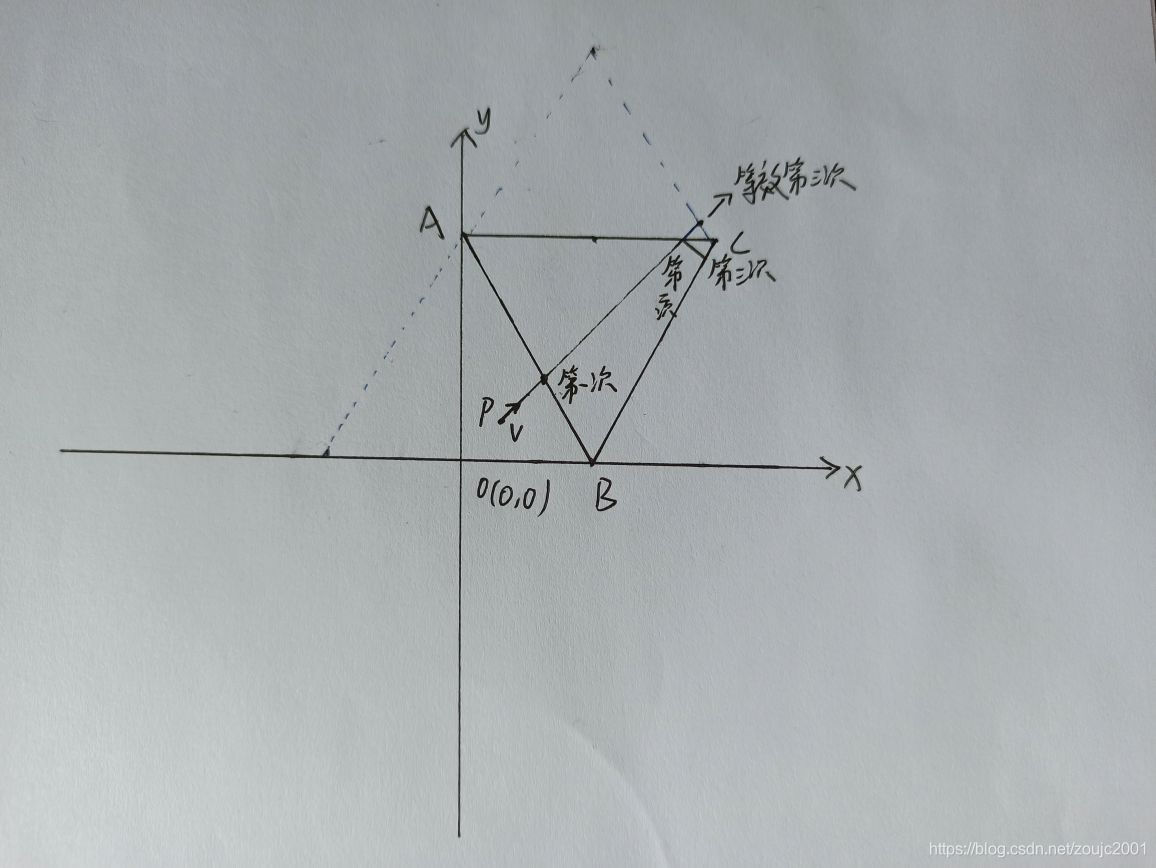 y
等效第三次
A
C
第二次
第三次
第一次
P
V
X
O(0,0)
B
https://blog.csdn.net/zoujc2001